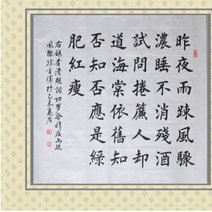 昨夜雨疎風驟
濃睡不消殘酒
試問捲簾人却
道海棠依舊知
否知否應是綠
肥紅瘦
李清照詞如夢令昨夜雨疎
風驟